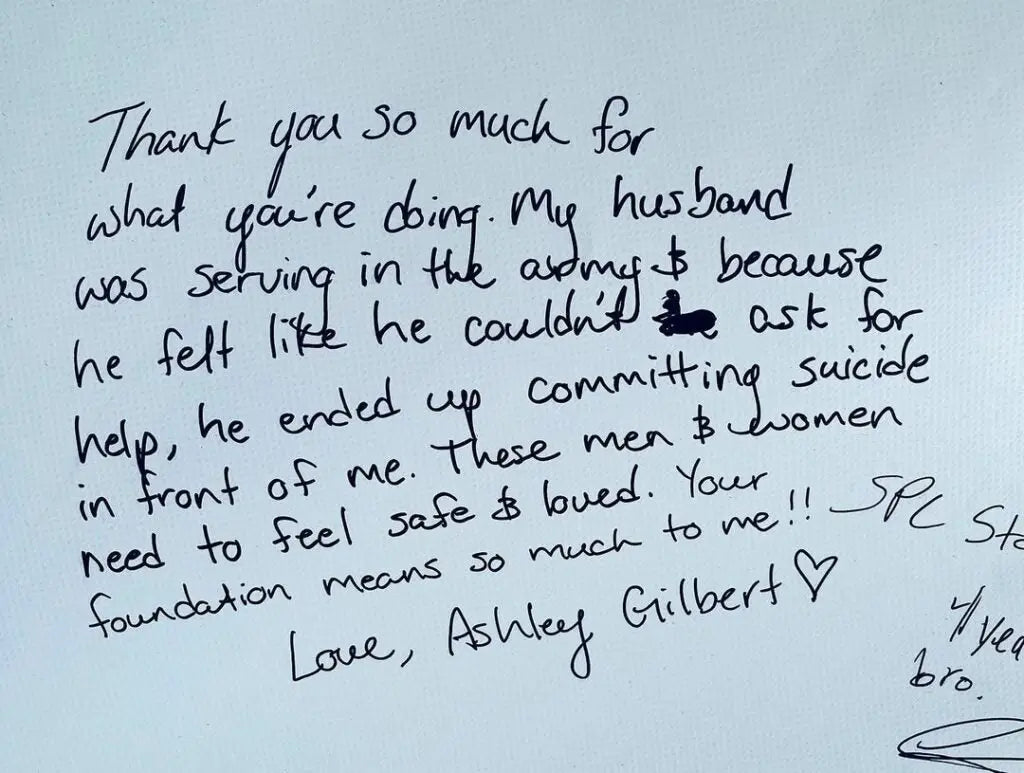 Thank you so much for
what you're doing. My husband
was serving in the army & because
he felt like he couldn't ask for
help, he ended up committing suicide
in front of me. These men & women
need to feel safe & loved. Your
foundation means so much to me!!
Love, Ashley Gilbert ♡
SPC
4 yea
bro.